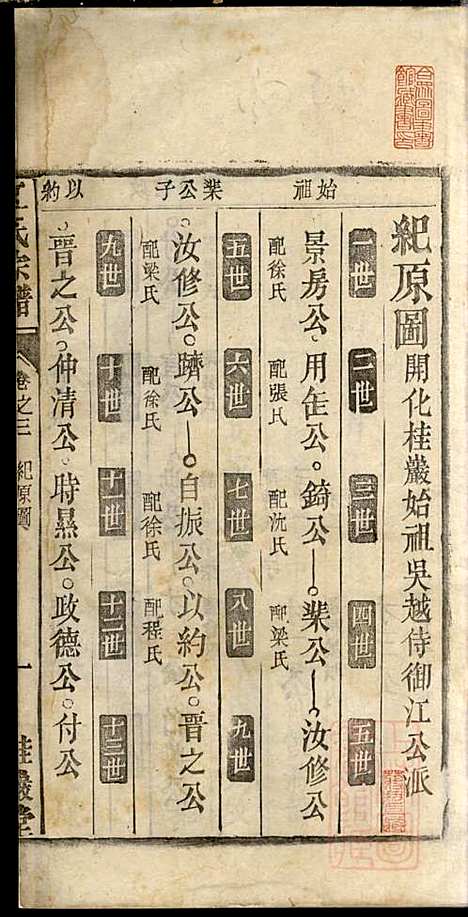 始祖
棐公子
以約
紀原圖 開化桂巖始祖吳越侍御江公派
一世 二世 三世 四世 五世
景房公 用缶公 錡公 棐公 汝修公
配徐氏 配張氏 配沈氏 配梁氏
五世 六世 七世 八世 九世
汝修公 躋公 自振公 以約公 晋之公
配梁氏 配徐氏 配徐氏 配程氏
九世 十世 十一世 十二世 十三世
晋之公 仲清公 時㬎公 政德公 付公
江氏宗譜 卷之三 紀原圖 一 桂巖堂